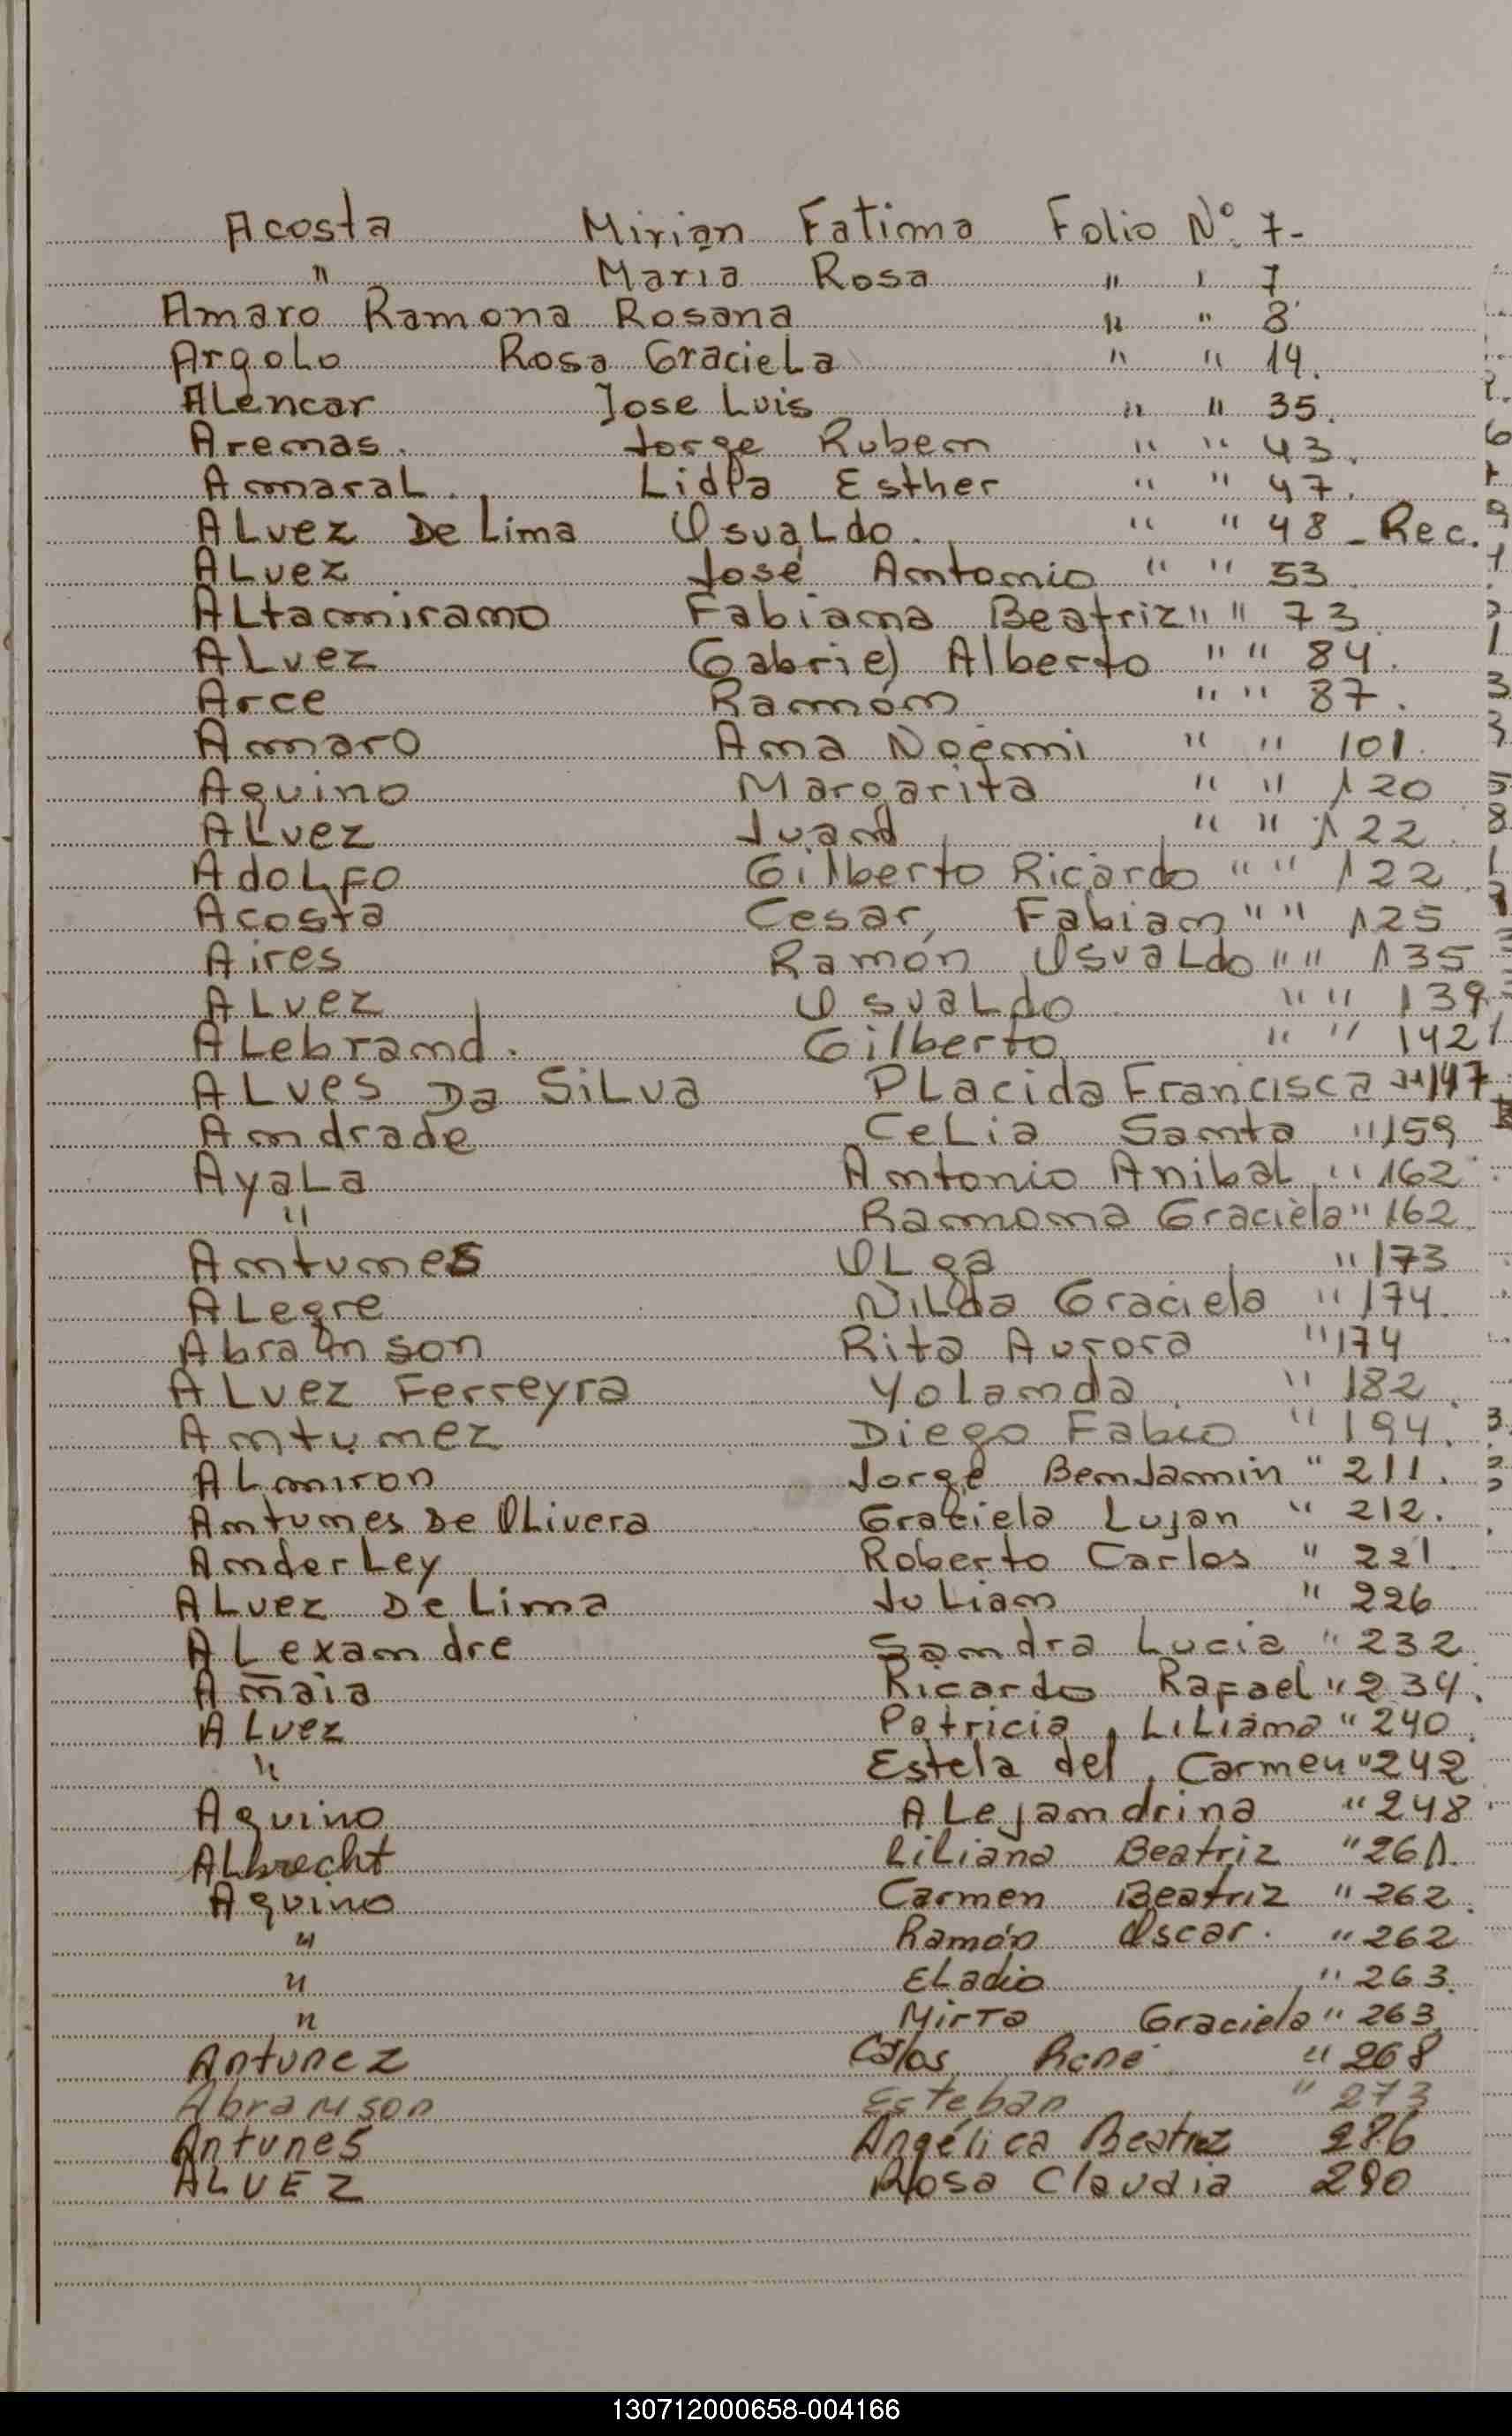 Acosta Mirian Fatima Folio Nº 7-
" Maria Rosa " " 7
Amaro Ramona Rosana " " 8
Argolo Rosa Graciela " " 14.
Alencar Jose Luis " " 35.
Arenas. Jorge Ruben " " 43.
Amaral. Lidia Esther " " 47.
Alvez De Lima Osvaldo. " " 48 - Rec.
Alvez José Antonio " " 53.
Altamirano Fabiana Beatriz " " 73.
Alvez Gabriel Alberto " " 84.
Arce Ramón " " 87.
Amaro Ana Noemi " " 101.
Aquino Margarita " " 120
Alvez Juan " " 122.
Adolfo Gilberto Ricardo " " 122.
Acosta Cesar, Fabian " " 125
Aires Ramón Osvaldo " " 135
Alvez Osvaldo " " 139
Alebrand. Gilberto " " 142
Alves Da Silva Placida Francisca " " 147
Andrade Celia Santa " 159
Ayala Antonio Anibal " 162
" Ramona Graciela " 162
Antunes Olga " 173
Alegre Nilda Graciela " 174.
Abramson Rita Aurora " 174
Alvez Ferreyra Yolanda " 182.
Antunez Diego Fabio " 194.
Almiron Jorge Benjamin " 211.
Antunes De Olivera Graciela Lujan " 212.
Anderley Roberto Carlos " 221.
Alvez De Lima Julian " 226
Alexandre Sandra Lucia " 232
Amaia Ricardo Rafael " 234.
Alvez Patricia, Liliana " 240.
" Estela del Carmen " 242
Aquino Alejandrina " 248
Albrecht Liliana Beatriz " 261.
Aquino Carmen Beatriz " 262.
" Ramón Oscar. " 262
" Eladio " 263.
" Mirta Graciela " 263
Antunez Carlos René " 268
Abramson Esteban " 273
Antunes Angélica Beatriz 286
ALVEZ Rosa Claudia 290
130712000658-004166